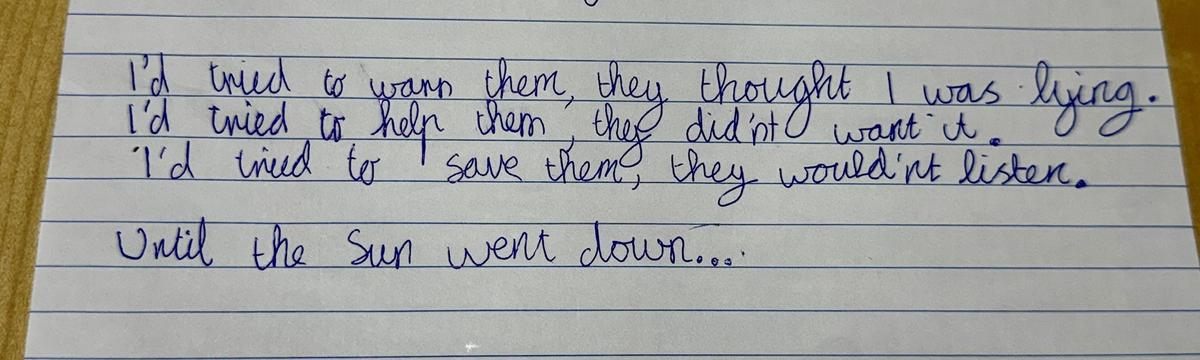 I'd tried to warn them, they thought I was lying.
I'd tried to help them, they did'nt want it.
I'd tried to save them, they would'nt listen.
Until the Sun went down....